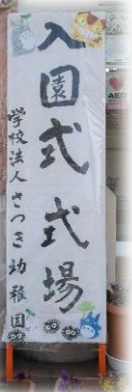 入園式式場
学校法人さつき幼稚園
AED